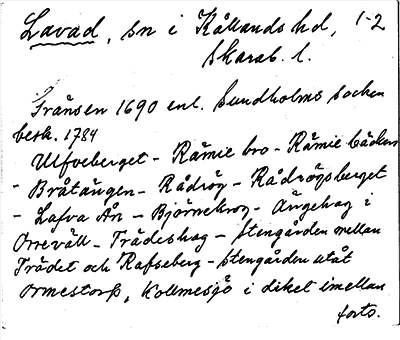 Lavad, sn i Kållands hd, 1-2
Skarab. l.
Gränsen 1690 enl. Sundholms socken
besk. 1784
Ulfveberget - Rämie bro - Rämie bäcken
- Bråtängen - Rådrög - Rådrögsberget
- Lafva Ån - Björnekrog - Ängehag i
Orrevall - Trädeshag - stengården mellan
Trädet och Rafseberg - stengården utåt
Ormestorp, Kollmesjö i diket imellan
forts.